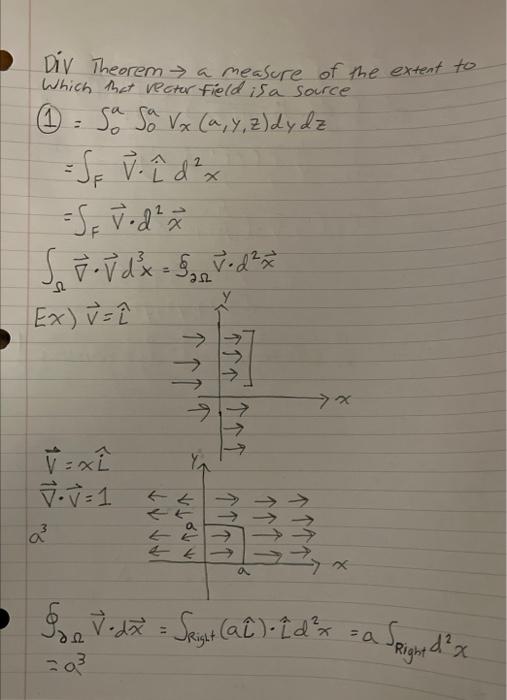 Div Theorem → a measure of the extent to
which that vector field is a source
① = ∫₀ᵃ ∫₀ᵃ Vₓ (a,y,z) dy dz
= ∫_F V⃗ · î d²x
= ∫_F V⃗ · d²x⃗
∫_Ω ∇⃗ · V⃗ d³x = ∮_∂Ω V⃗ · d²x⃗
Ex) V⃗ = î
y
x
V⃗ = xî
∇⃗ · V⃗ = 1
a³
y
a
a
x
∮_∂Ω V⃗ · dx⃗ = ∫_Right (aî) · î d²x = a ∫_Right d²x
= a³